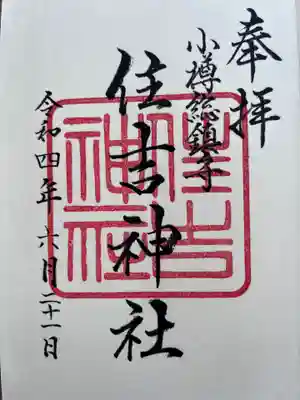 奉拝
小樽総鎮守
住吉神社
令和四年六月二十一日
住吉
神社